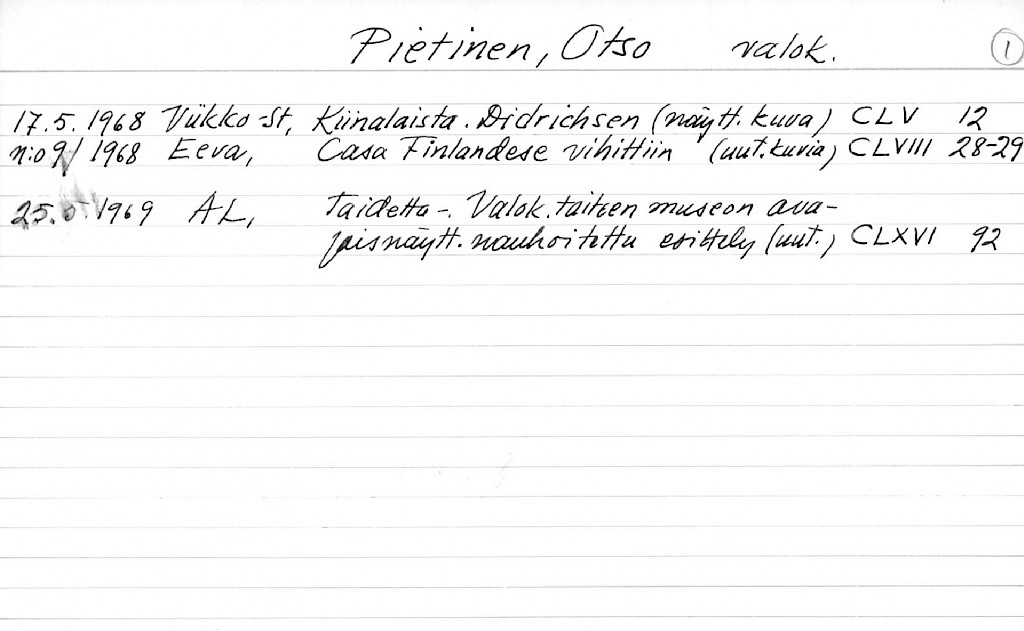 Pietinen, Otso valok. 1
17.5.1968 Viikko-St, Kiinalaista. Didrichsen (näytt. kuva) CLV 12
n:o 9/1968 Eeva, Casa Finlandese vihittiin (uut. kuvia) CLVIII 28-29
25.5.1969 AL, Taidetta-. Valok. taiteen museon ava-
jaisnäytt. nauhoitettu esittely (uut.) CLXVI 92